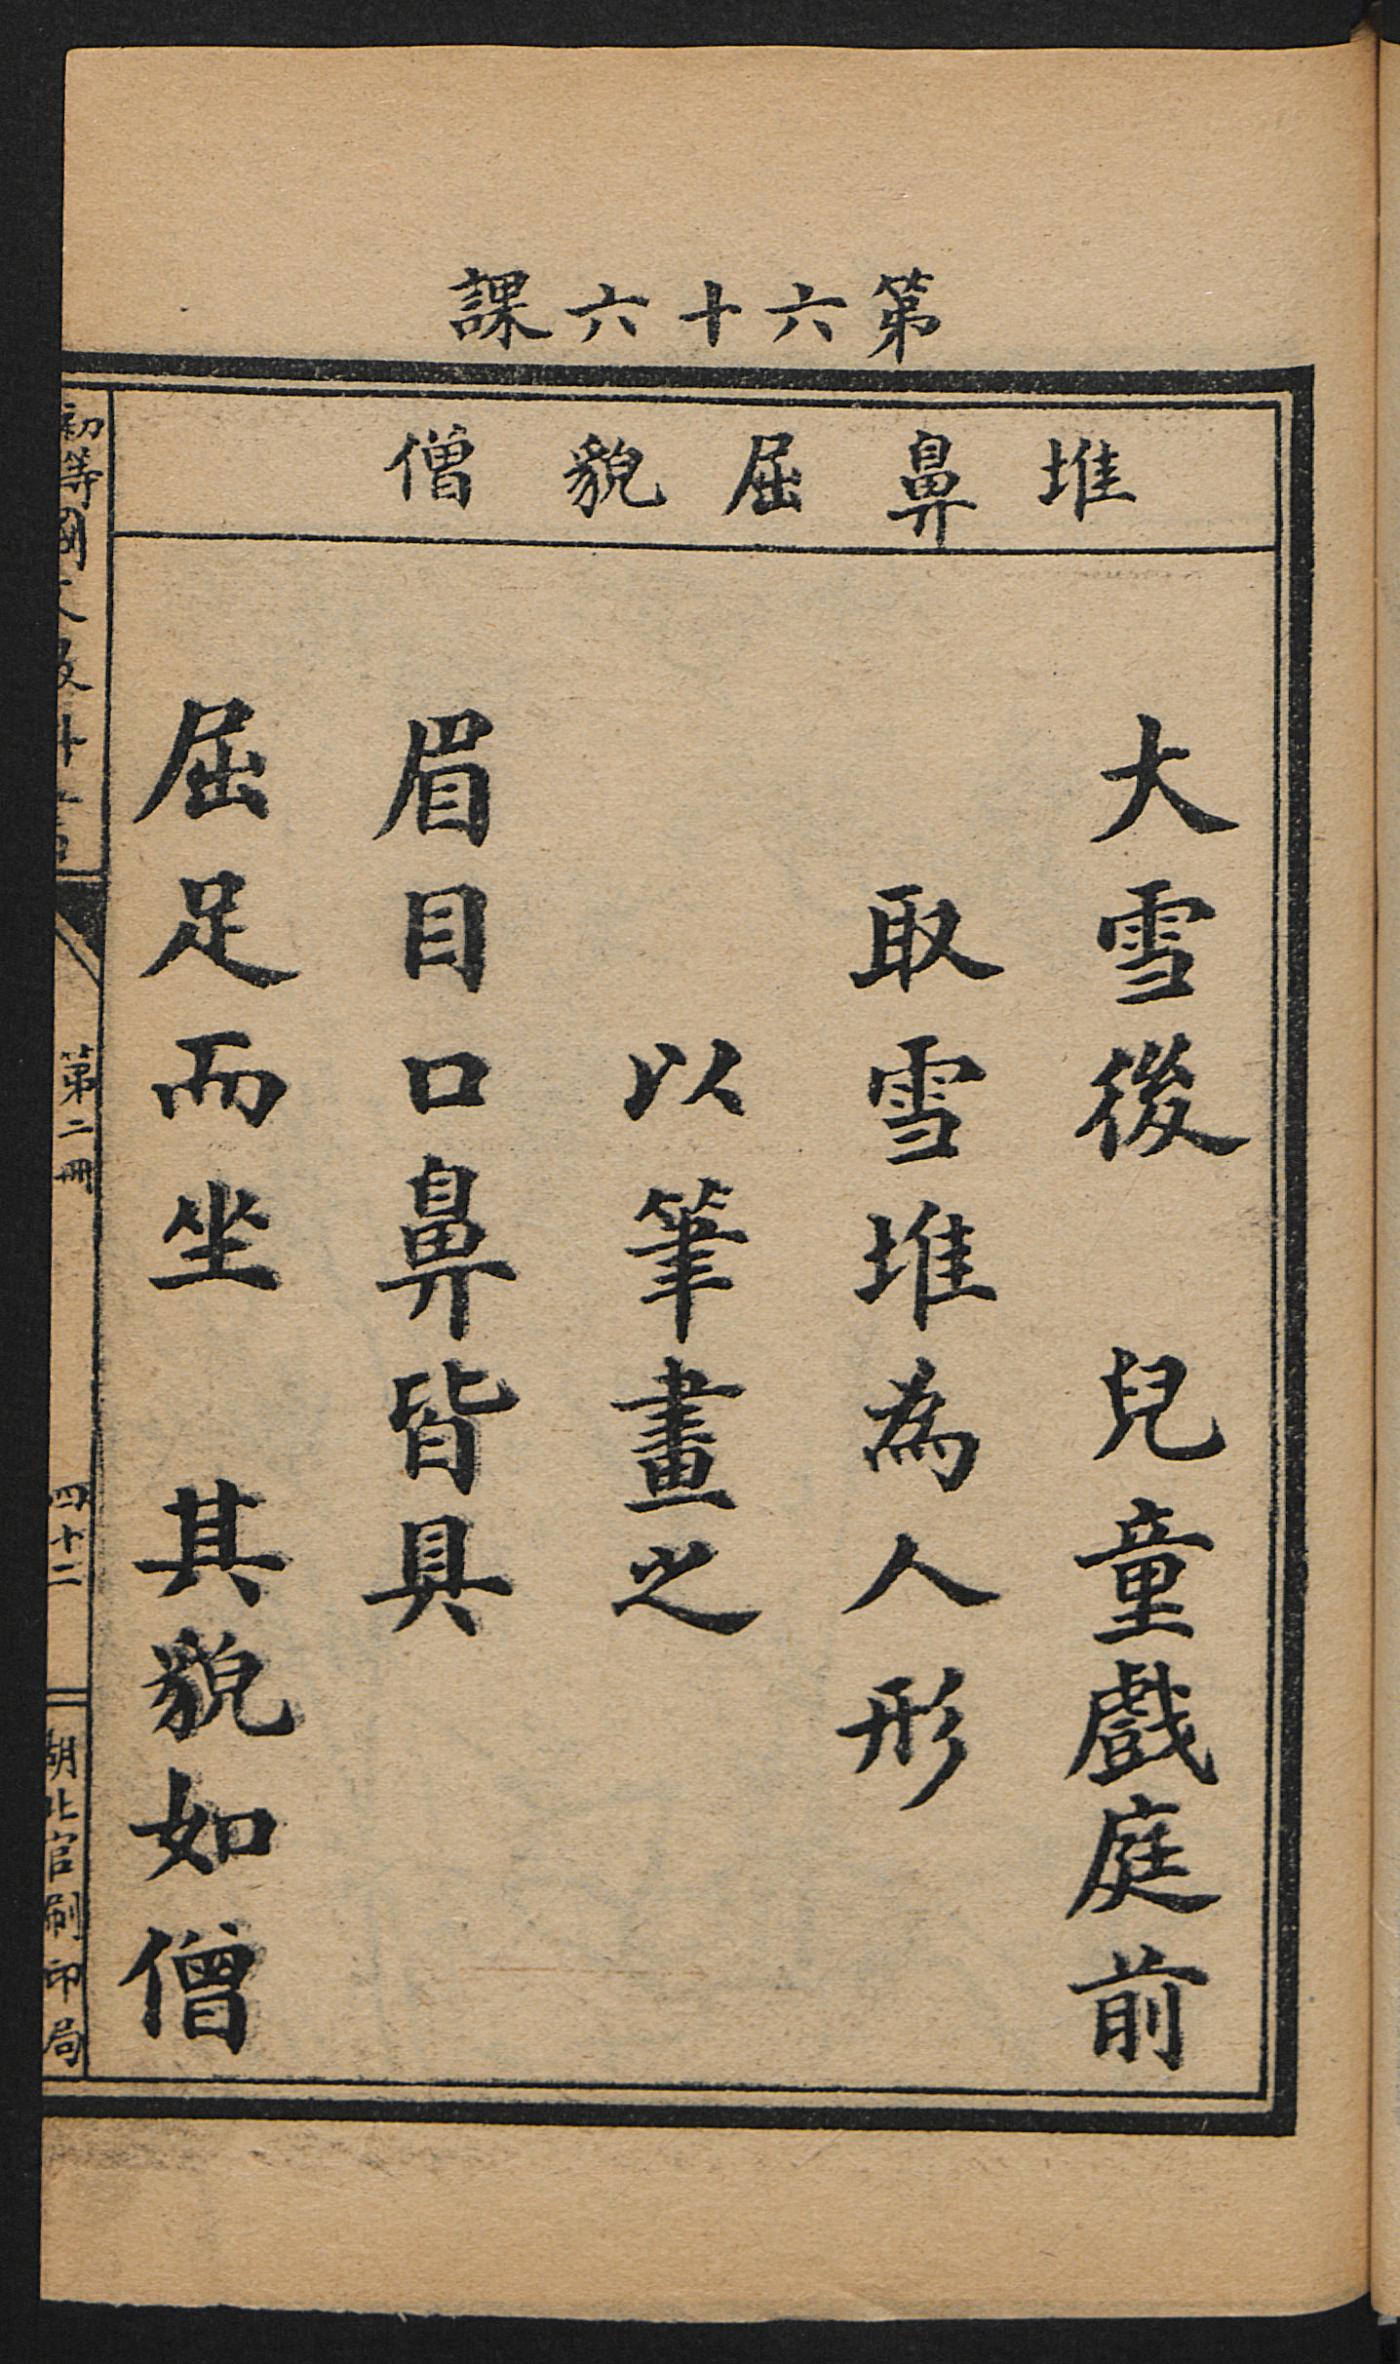 第六十六課
堆鼻屈貌僧
大雪後　兒童戲庭前
取雪堆為人形
以筆畫之
眉目口鼻皆具
屈足而坐　其貌如僧
初等國文教科書
第二冊
四十二
湖北官刷印局